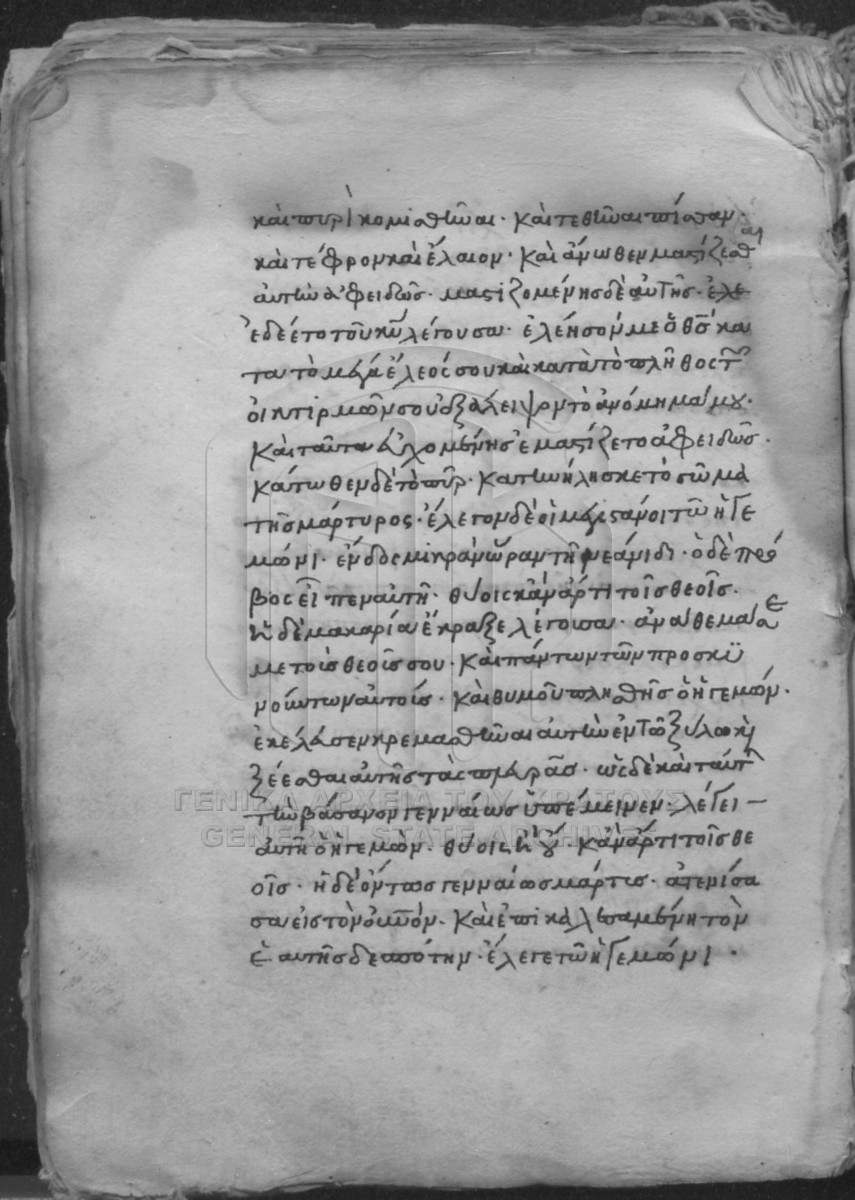 καὶ πυρὶ κομισθῆναι· καὶ τεθῆναι πίσσαν·
καὶ τέφρον καὶ ἔλαιον· καὶ ἄνωθεν μαστίζεσθαι
αὐτὴν ἀφειδῶς· μαστιζομένης δὲ αὐτῆς· ἐλε
ἐδέετο τοῦ κυ λέγουσα· ἐλέησόν με ὁ θσ κα
τα τὸ μέγα ἔλεός σου καὶ κατὰ τὸ πλῆθος τῶν
οἰκτιρμῶν σου ἐξάλειψον τὸ ἀνόμημά μου·
καὶ ταῦτα εὐχομένης ἐμαστίζετο ἀφειδῶς·
κάτωθεν δὲ τὸ πῦρ· κατηνήλισκε τὸ σῶμα
τῆς μάρτυρος· ἔλεγον δὲ οἱ μεγιστάνοι τῶ ἡγε
μόνι· ἔνδος μικρὰν ὥραν τῆ νεάνιδι· ὁ δὲ πρέσ
βος εἶπεν αὐτῆ· θύσις κἀν ἄρτι τοῖς θεοῖς·
ἡ δὲ μακαρία ἔκραξε λέγουσα· ἀνάθεμά σε
με τοῖς θεοῖς σου· καὶ πάντων τῶν προσκυ
νούντων αὐτοῖς· καὶ θυμοῦ πλησθῆς ὁ ἡγεμών·
ἐκέλευσεν κρεμασθῆναι αὐτὴν ἐν τῶ ξύλω καὶ
ξέεσθαι αὐτῆς τὰς πλευράς· ὡς δὲ καὶ ταύτην
τὴν βάσανον γενναίως ὑπέμεινεν· λέγει
αὐτῆ ὁ ἡγεμών· θύσις ἢ οὔ κἀν ἄρτι τοῖς θε
οῖς· ἡ δὲ ὄντως γενναίως μάρτυς· ἀτενίσα
σα εἰς τὸν οὐνόν· καὶ ἐπικαλεσαμένη τὸν
ἑαυτῆς δεσπότην· ἔλεγε τῶ ἡγεμόνι·
ΓΕΝΙΚΑ ΑΡΧΕΙΑ ΤΟΥ ΚΡΑΤΟΥΣ
GENERAL STATE ARCHIVES